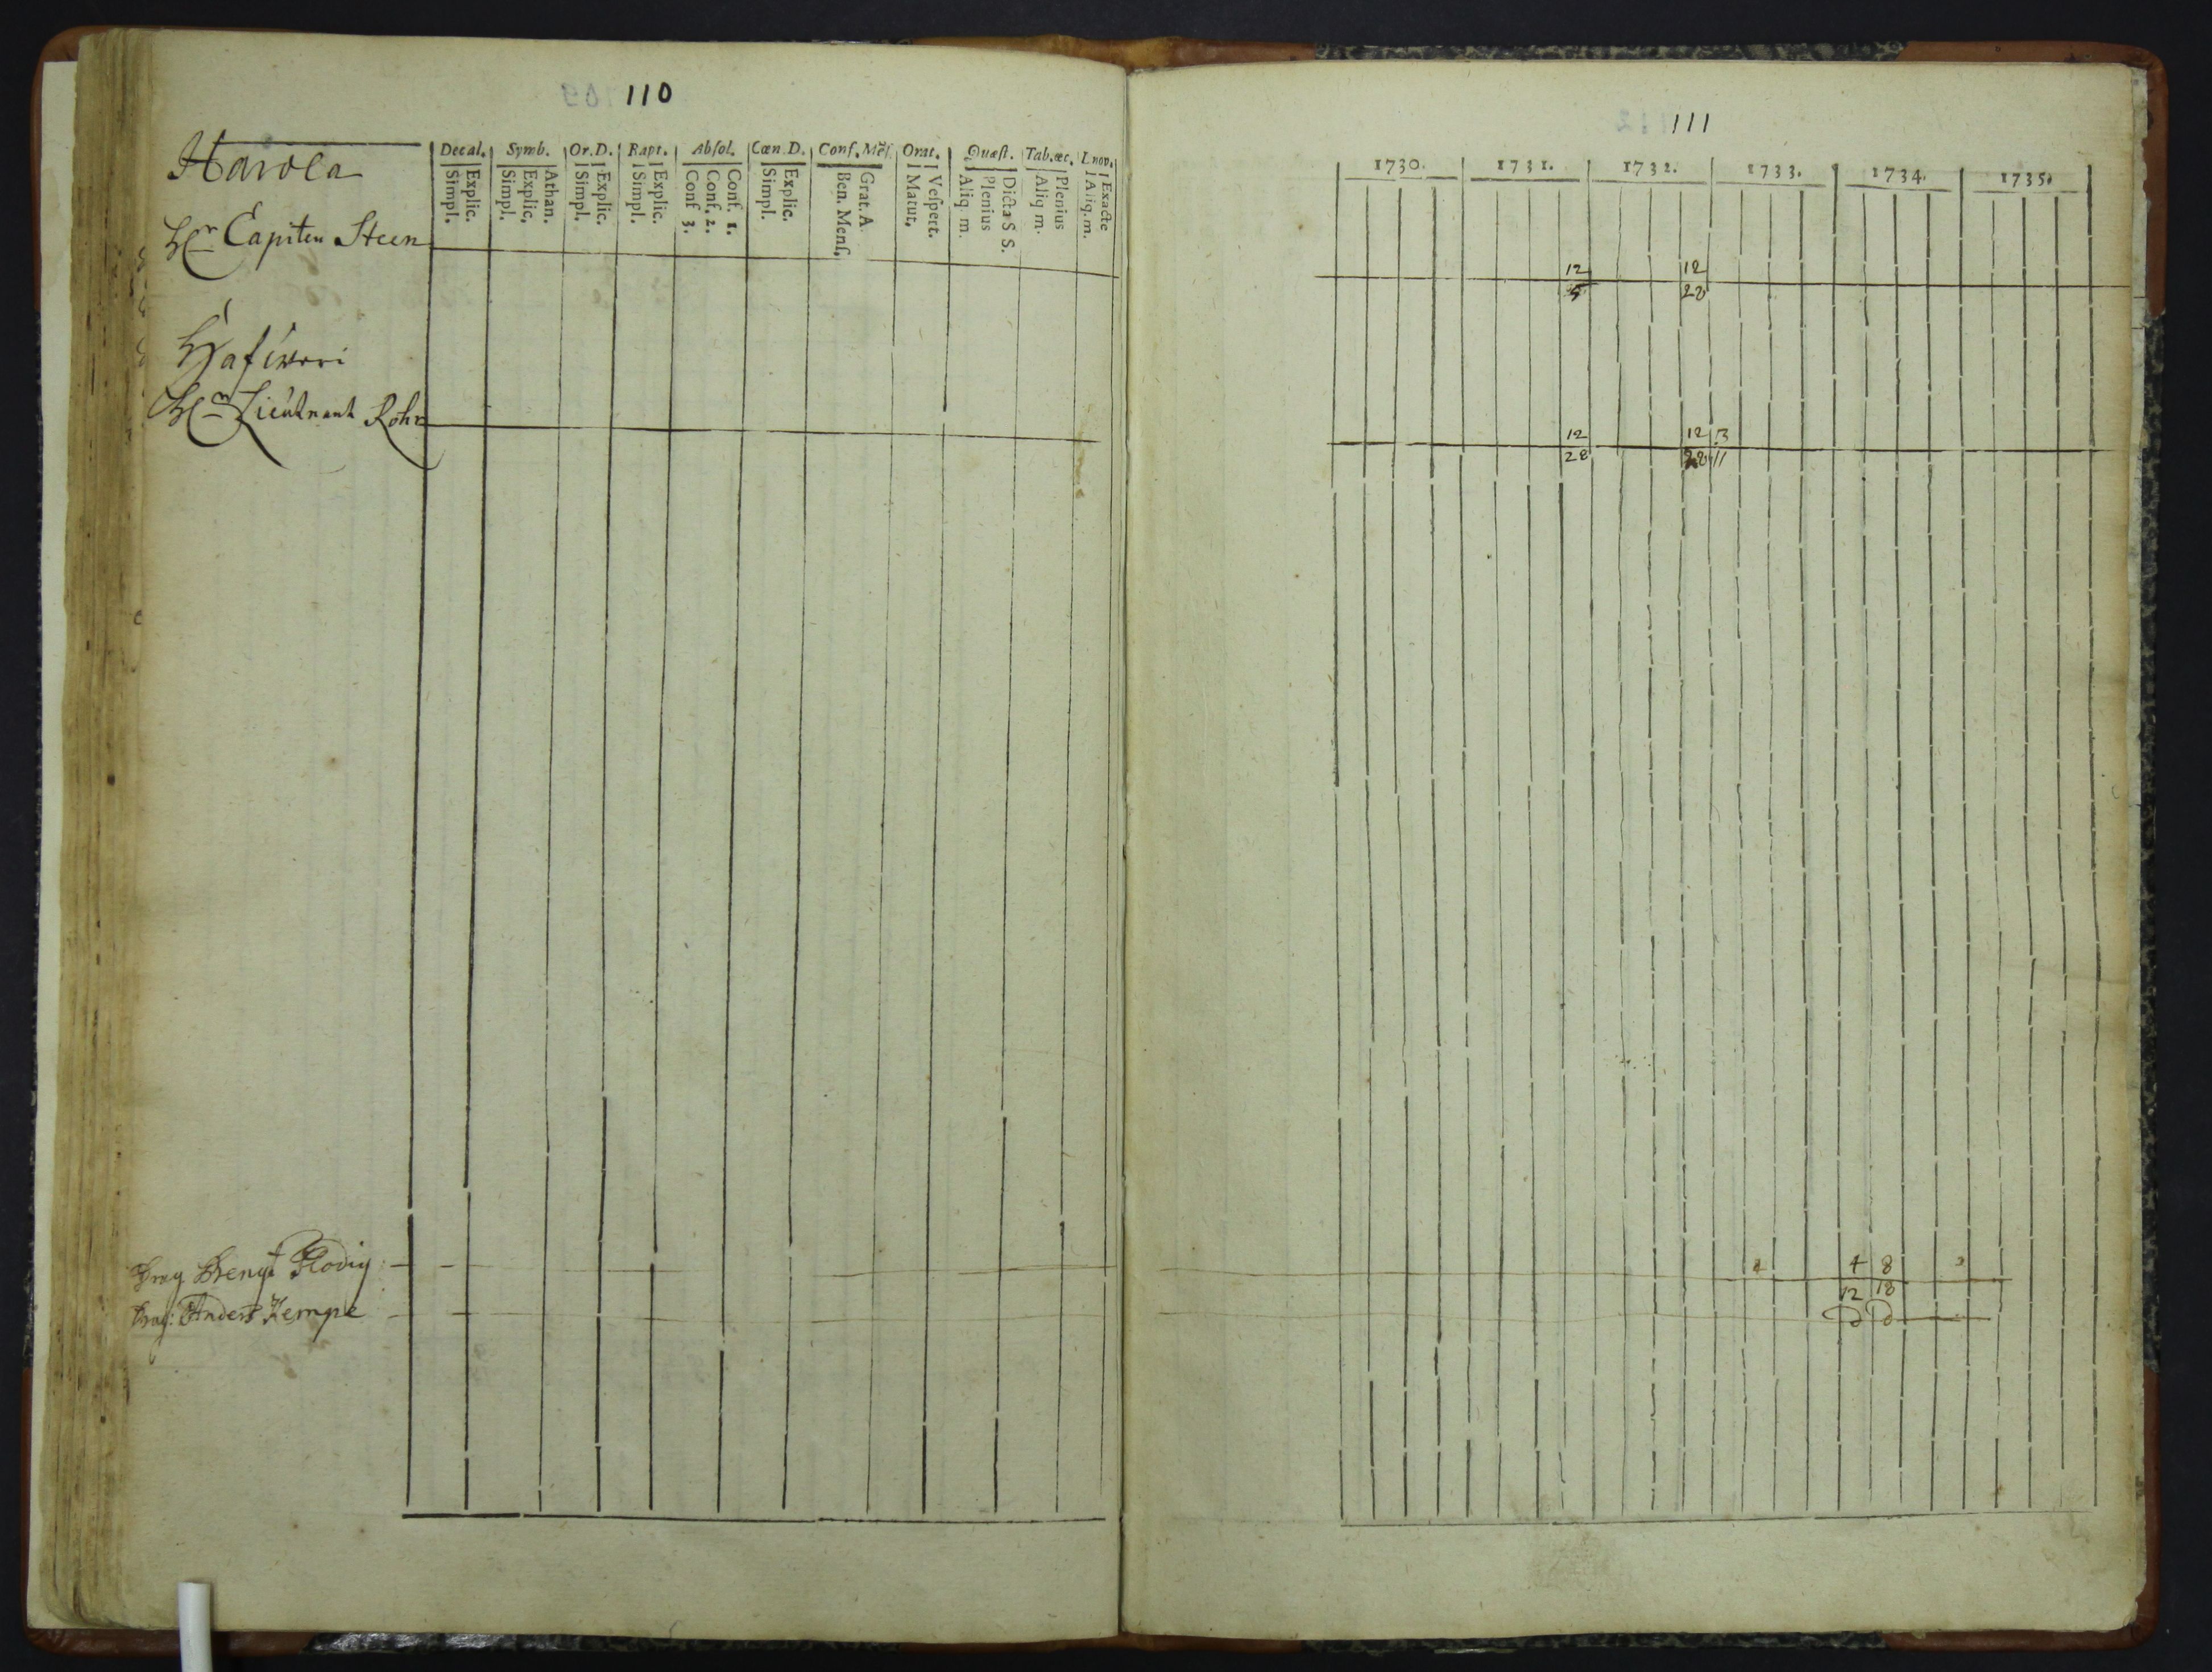 110
Harola
Decal. Symb. Or.D. Bapt. Absol. Cœn.D. Conf.Mes. Orat. Quæst. Tab.œc. L.nov.
Simpl. Explic. Simpl. Explic. Athan. Simpl. Explic. Simpl. Explic. Conf 3. Conf. 2. Conf. 1. Simpl. Explic. Ben. Mens. Grat. A. Matut. Vespert. Aliq. m. Plenius Dicta S S. Aliq m. Plenius Aliq. m. Exacte
Hr Capiten Steen
Hr Lieutnant Rohr
Drag Bengt Flodig
Drag: Anders Kempe
111
1730. 1731. 1732. 1733. 1734. 1735.
12 12
5 28
12 12 3
28 28 11
4 8
12 18
D D